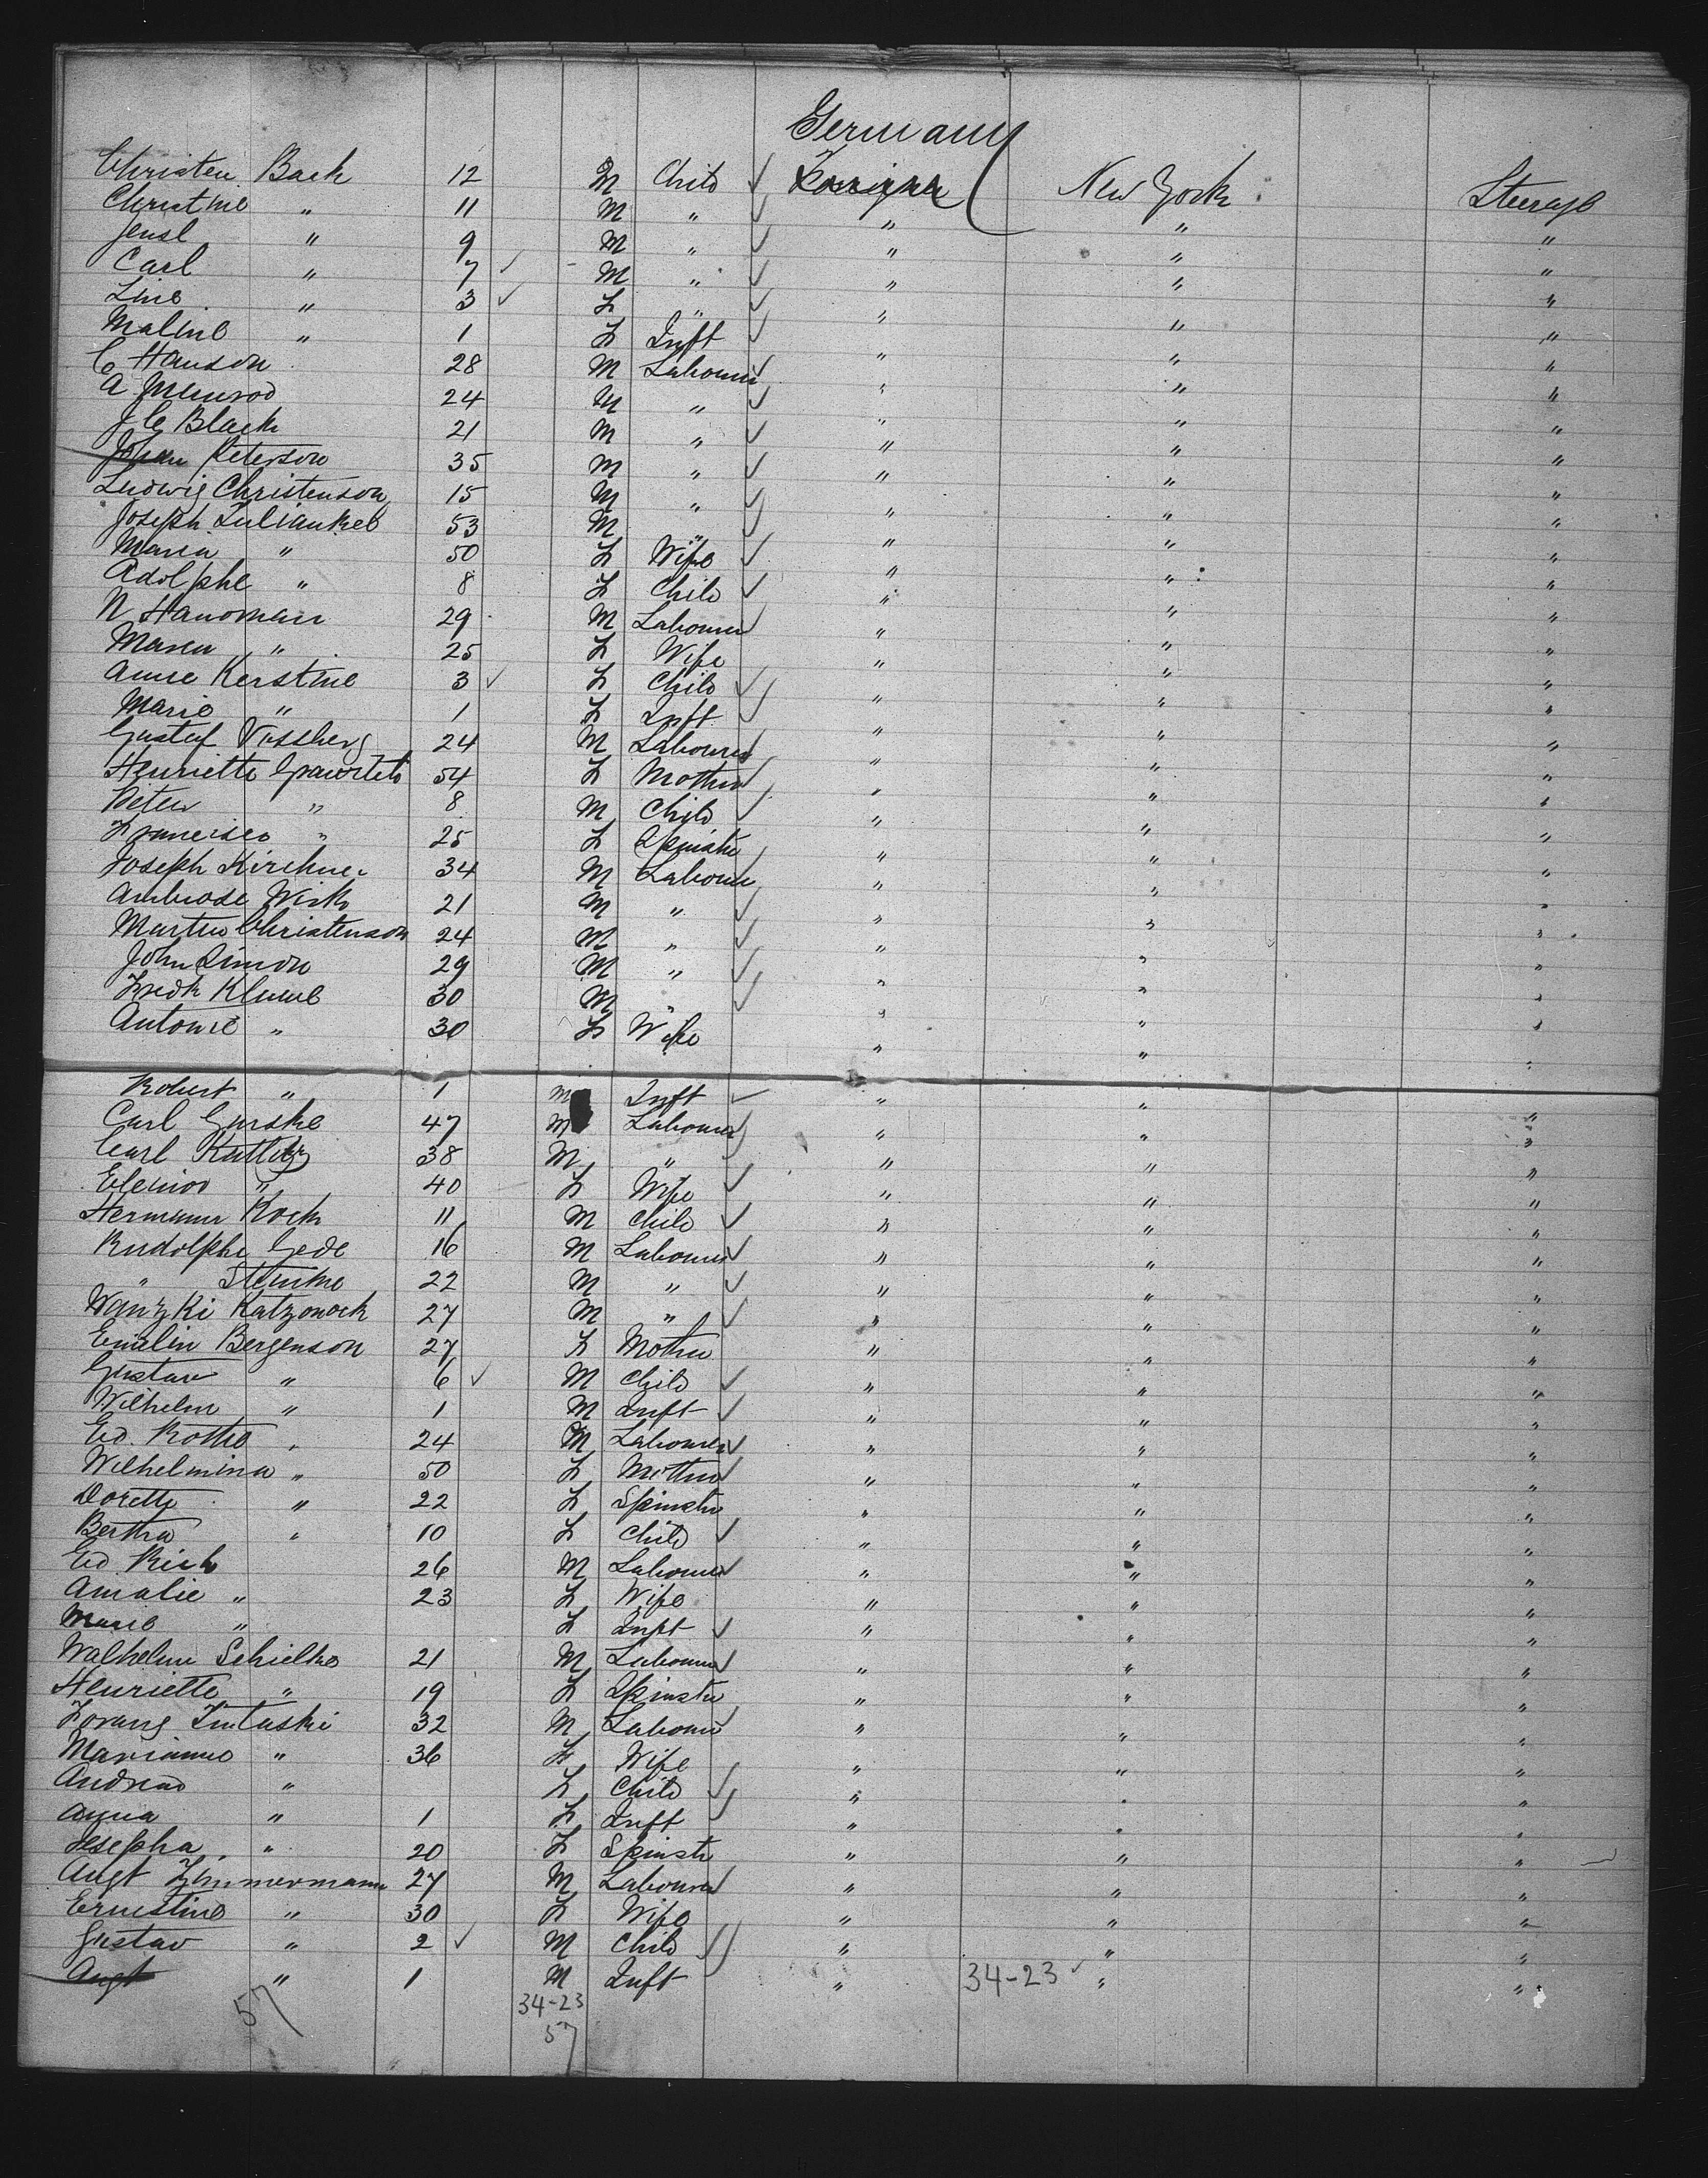 Germany
Christen Bach 12 M Child ✓ Foreign New York Steerage
Christine " 11 M " ✓ " " "
Jensl " 9 M " ✓ " " "
Carl " 7 ✓ M " ✓ " " "
Line " 3 ✓ F " ✓ " " "
Maline " 1 F Inft ✓ " " "
C Hanson 28 M Labourer ✓ " " "
A 24 M " ✓ " " "
J C Black 21 M " ✓ " " "
Johan Peterson 35 M " ✓ " " "
Ludwig Christenson 15 M " ✓ " " "
Joseph 53 M " ✓ " " "
Maria " 50 F Wife ✓ " " "
Adolphe " 8 F Child ✓ " " "
N Handman 29 M Labourer ✓ " " "
Maren " 25 F Wife " " "
Anne Kerstine 3 ✓ F Child ✓ " " "
Marie " 1 F Inft ✓ " " "
Gustaf Vossberg 24 M Labourer ✓ " " "
Henriette 54 F Mother ✓ " " "
Peter " 8 M Child ✓ " " "
Francisco " 25 F Spinster " " "
Joseph Kirchner 34 M Labourer ✓ " " "
Ambrose Wirk 21 M " ✓ " " "
Martin Christenson 24 M " ✓ " " "
John Simon 29 M " ✓ " " "
Fredk Klume 30 M " ✓ " " "
Antonie " 30 F Wife " " "
Robert " 1 M Inft ✓ " " "
Carl Gurske 47 M Labourer ✓ " " "
Carl 38 M " " " "
Elenior " 40 F Wife ✓ " " "
Hermann Koch 11 M Child ✓ " " "
Rudolphe Gede 16 M Labourer ✓ " " "
" Stemke 22 M " ✓ " " "
Wanzki Katzonock 27 M " ✓ " " "
Emelin Bergenson 27 F Mother " " "
Gustav " 6 ✓ M Child ✓ " " "
Wilhelm " 1 M Inft ✓ " " "
Ed. Rothe 24 M Labourer ✓ " " "
Wilhelmina " 50 F Mother ✓ " " "
Dorette " 22 F Spinster " " "
Bertha " 10 F Child ✓ " " "
Ed Rich 26 M Labourer ✓ " " "
Amalie " 23 F Wife " " "
Marie " F Inft ✓ " " "
Walhelm Schielke 21 M Labourer ✓ " " "
Henriette " 19 F Spinster " " "
Forang Tintaski 32 M Labourer ✓ " " "
Marianne " 36 F Wife " " "
Andreas " F Child ✓ " " "
Anna " 1 F Inft ✓ " " "
Josepha " 20 F Spinster " " "
Augt Zimmermann 27 M Labourer ✓ " " "
Ernestine " 30 F Wife " " "
Gustav " 2 ✓ M Child ✓ " " "
Augt " 1 M Inft ✓ " 34-23 ✓ " "
57 34-23
57